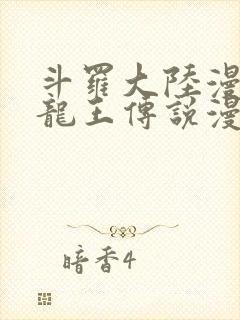 斗羅大陸漫
龍王傳說漫
暗香4